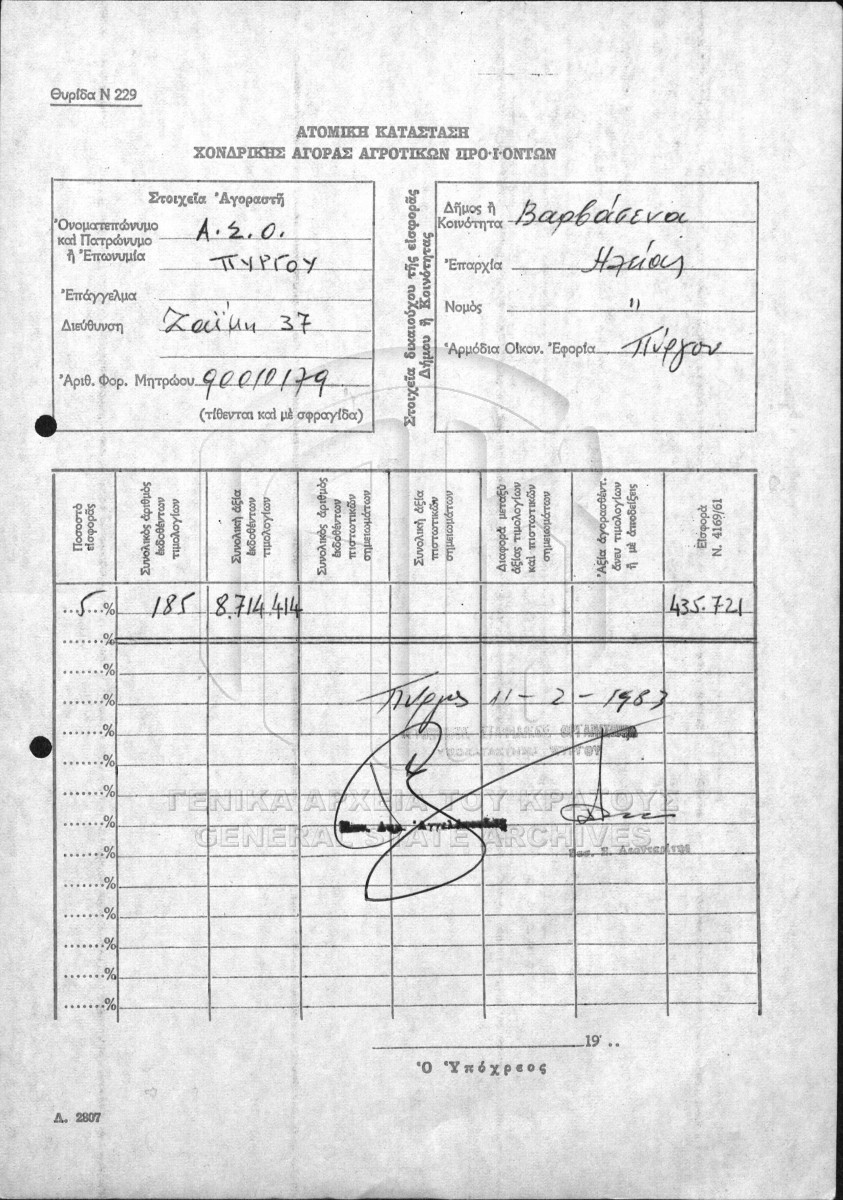 Θυρίδα Ν 229
ΑΤΟΜΙΚΗ ΚΑΤΑΣΤΑΣΗ
ΧΟΝΔΡΙΚΗΣ ΑΓΟΡΑΣ ΑΓΡΟΤΙΚΩΝ ΠΡΟ·Ι·ΟΝΤΩΝ
Στοιχεῖα Ἀγοραστῆ
Ὀνοματεπώνυμο
καὶ Πατρώνυμο
ἢ Ἐπωνυμία
Α.Σ.Ο.
ΠΥΡΓΟΥ
Ἐπάγγελμα
Διεύθυνση Ζαΐμη 37
Ἀριθ. Φορ. Μητρώου 90010179
(τίθενται καὶ μὲ σφραγίδα)
Στοιχεῖα δικαιούχου τῆς εἰσφορᾶς
Δήμου ἢ Κοινότητας
Δῆμος ἢ
Κοινότητα Βαρβάσενα
Ἐπαρχία Ηλείας
Νομὸς "
Ἁρμόδια Οἰκον. Ἐφορία Πύργου
Ποσοστὸ
εἰσφορᾶς
Συνολικὸς ἀριθμὸς
ἐκδοθέντων
τιμολογίων
Συνολικὴ ἀξία
ἐκδοθέντων
τιμολογίων
Συνολικὸς ἀριθμὸς
ἐκδοθέντων
πιστωτικῶν
σημειωμάτων
Συνολικὴ ἀξία
πιστωτικῶν
σημειωμάτων
Διαφορὰ μεταξὺ
ἀξίας τιμολογίων
καὶ πιστωτικῶν
σημειωμάτων
Ἀξία ἀγορασθέντ.
ἄνευ τιμολογίων
ἢ μὲ ἀποδείξεις
Εἰσφορὰ
Ν. 4169/61
5 % 185 8.714.414 435.721
......%
......%
......%
......%
......%
......%
......%
......%
......%
......%
......%
......%
......%
Πύργος 11-2-1983
ΓΕΝΙΚΑ ΑΡΧΕΙΑ ΤΟΥ ΚΡΑΤΟΥΣ
GENERAL STATE ARCHIVES
19 ..
Ὁ Ὑπόχρεος
Δ. 2807